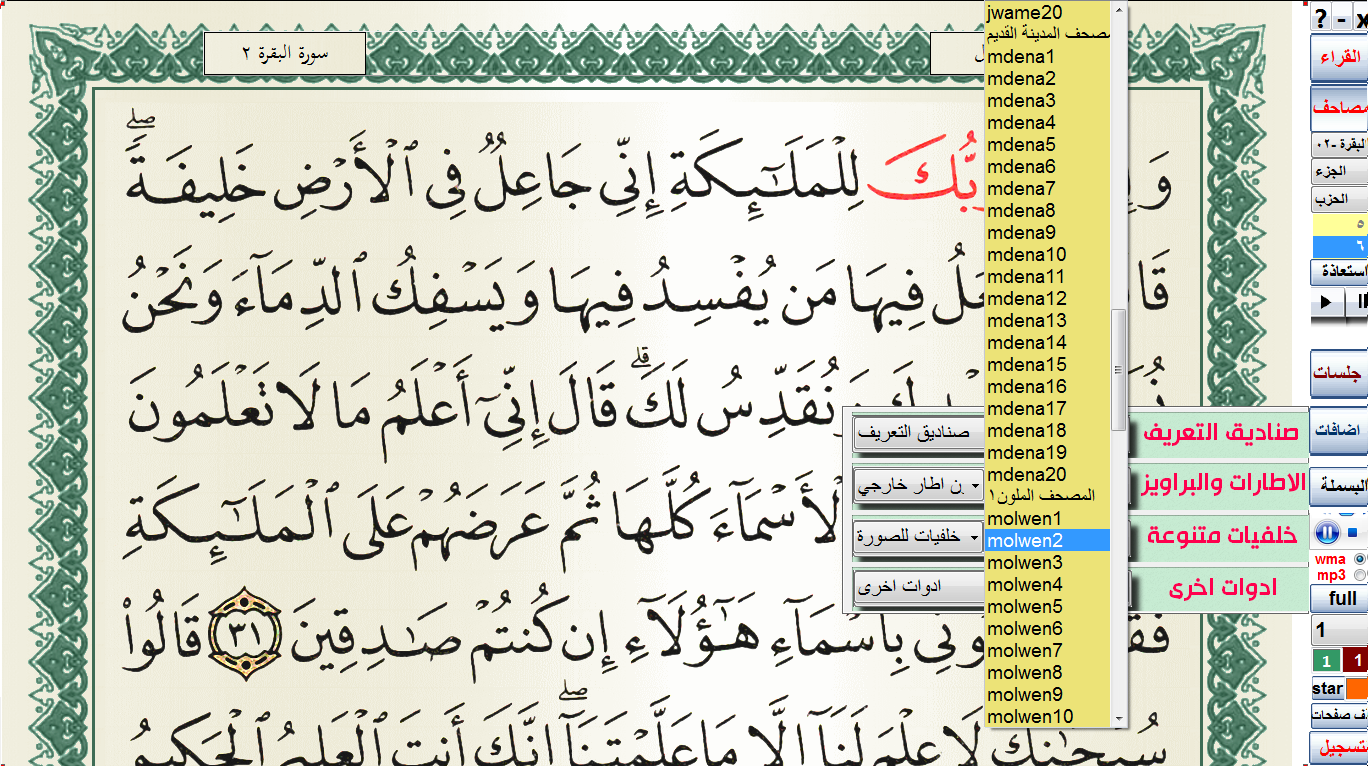 سورة البقرة ٢
رَبُّكَ لِلْمَلَٰٓئِكَةِ إِنِّى جَاعِلٌ فِى ٱلْأَرْضِ خَلِيفَةً ۖ
فِيهَا مَن يُفْسِدُ فِيهَا وَيَسْفِكُ ٱلدِّمَآءَ وَنَحْنُ
وَنُقَدِّسُ لَكَ ۖ قَالَ إِنِّىٓ أَعْلَمُ مَا لَا تَعْلَمُونَ
ٱلْأَسْمَآءَ كُلَّهَا ثُمَّ عَرَضَهُمْ عَلَى ٱلْمَلَٰٓئِكَةِ
بِأَسْمَآءِ هَٰٓؤُلَآءِ إِن كُنتُمْ صَٰدِقِينَ ٣١ قَالُوا۟
سُبْحَٰنَكَ لَا عِلْمَ لَنَآ إِلَّا مَا عَلَّمْتَنَآ ۖ إِنَّكَ أَنتَ ٱلْعَلِيمُ ٱلْحَكِيمُ
jwame20
مصحف المدينة القديم
mdena1
mdena2
mdena3
mdena4
mdena5
mdena6
mdena7
mdena8
mdena9
mdena10
mdena11
mdena12
mdena13
mdena14
mdena15
mdena16
mdena17
mdena18
mdena19
mdena20
المصحف الملون١
molwen1
molwen2
molwen3
molwen4
molwen5
molwen6
molwen7
molwen8
molwen9
molwen10
صناديق التعريف
ن اطار خارجي
خلفيات للصورة
ادوات اخرى
صناديق التعريف
الاطارات والبراويز
خلفيات متنوعة
ادوات اخرى
? - x
القراء
مصاحف
البقرة -٠٢
الجزء
الحزب
٥
٦
استعاذة
جلسات
اضافات
البسملة
wma
mp3
full
1
1 1
star
صفحات
تسجيل